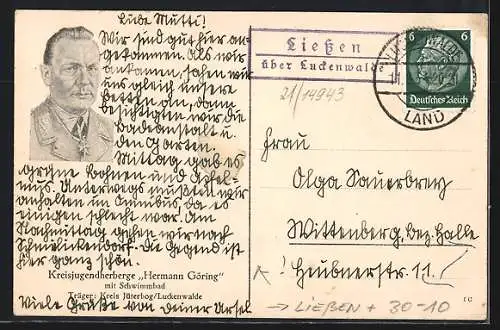 Liebe Mutti!
Wir sind gut hier an-
gekommen. Als wir
ankamen, sahen wir
uns gleich unsere
Betten an, dann
besichtigten wir die
Badeanstalt u.
den Garten.
Mittag gab es
grüne Bohnen und Apfel-
mus. Unterwegs mußten wir
anhalten im Omnibus, da es
einigen schlecht war. Am
Nachmittag gehen wir nach
Schmielickendorf. Die Gegend ist
hier ganz schön.
Kreisjugendherberge „Hermann Göring"
mit Schwimmbad
Träger: Kreis Jüterbog/Luckenwalde
Viele Grüße von deiner Ursel
Ließen
über Luckenwalde
21/14943
6 6
Deutsches Reich
LAND
Frau
Olga Sauerbrey
Wittenberg, bez. Halle
Heubnerstr. 11
LIEßEN + 30-10